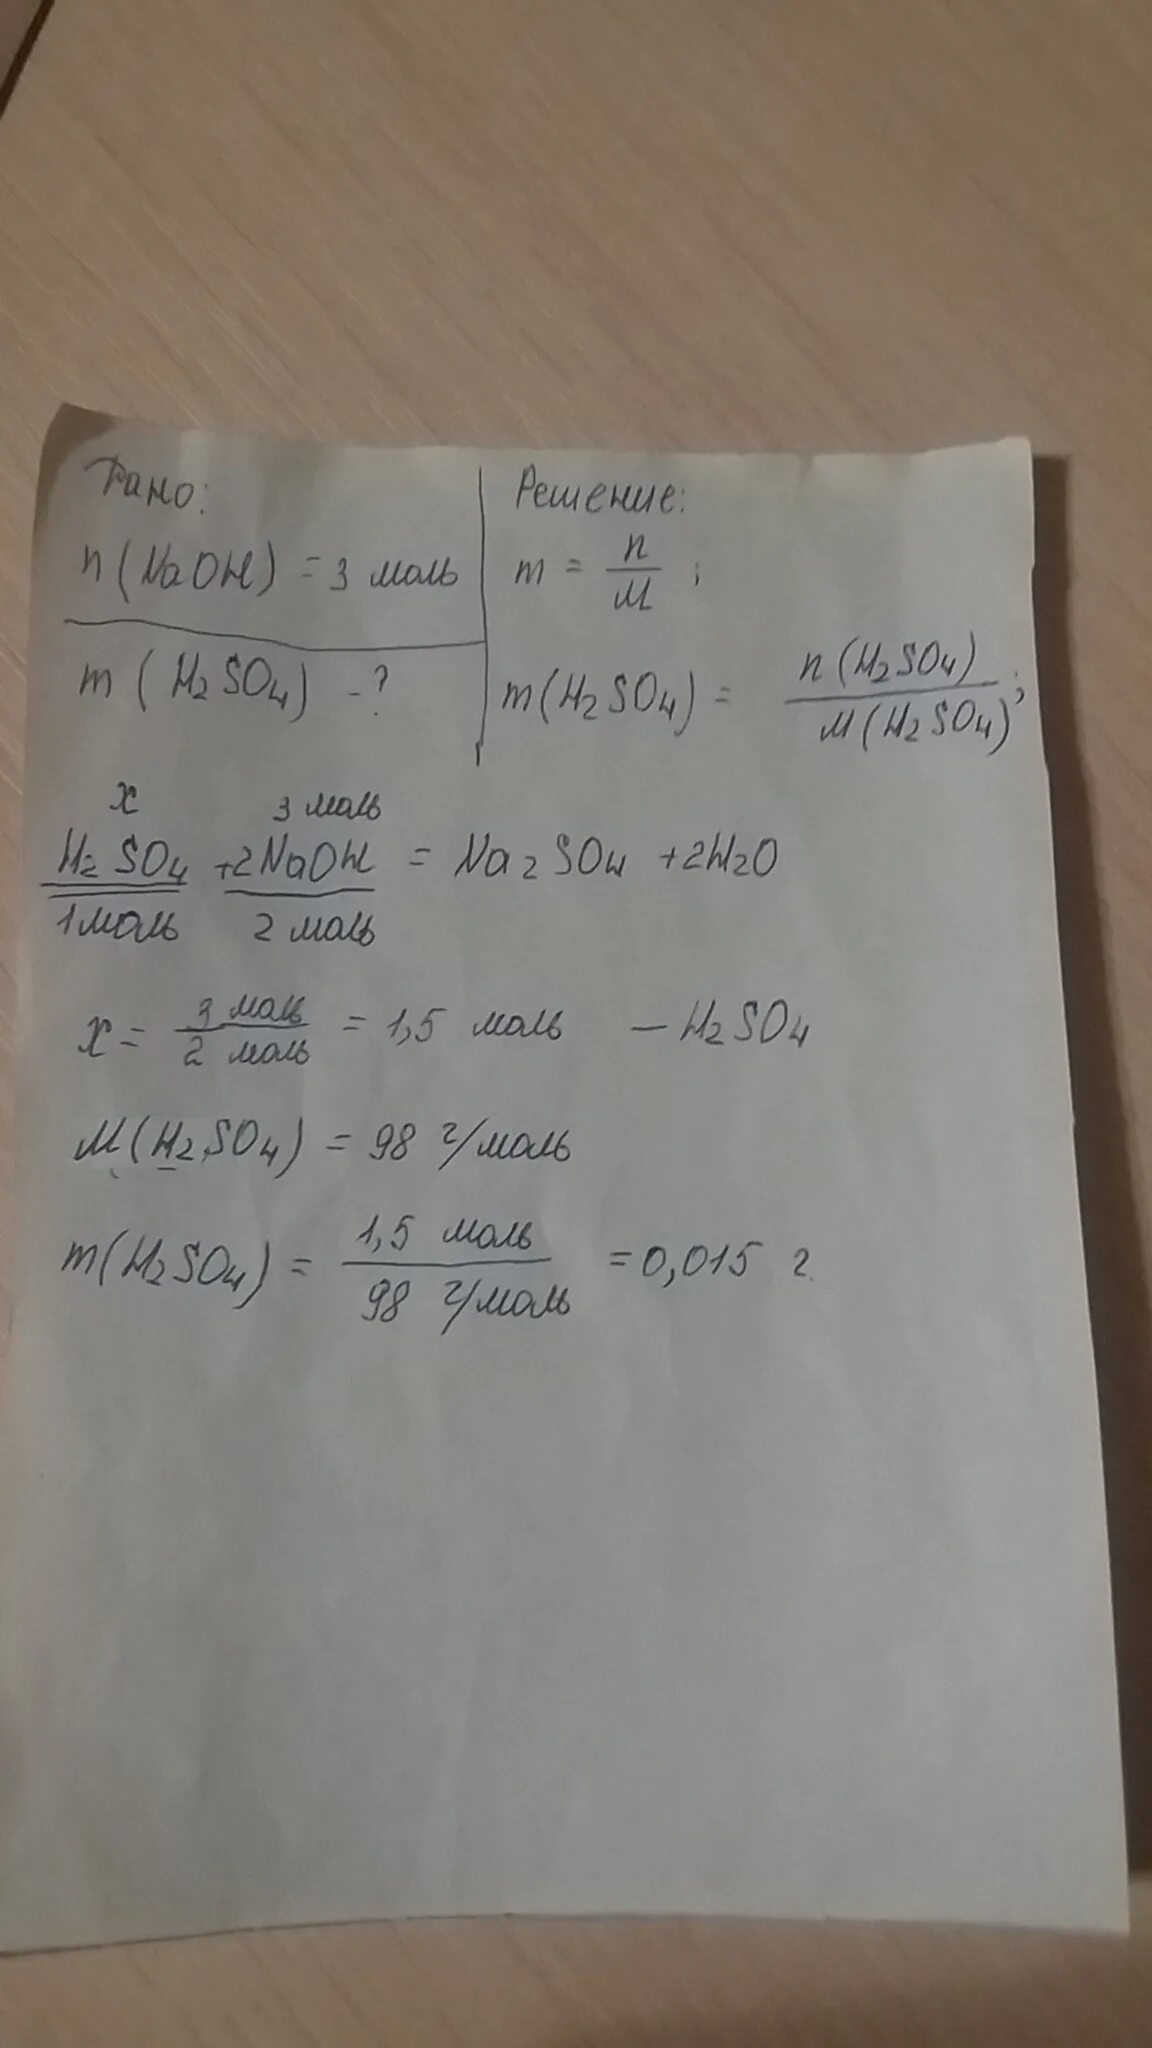 Дано:
n (NaOH) = 3 моль
m (H₂SO₄) - ?
Решение:
m = n/M ;
m (H₂SO₄) = n (H₂SO₄) / M (H₂SO₄) ;
x 3 моль
H₂SO₄ + 2NaOH = Na₂SO₄ + 2H₂O
1 моль 2 моль
x = 3 моль / 2 моль = 1,5 моль — H₂SO₄
M (H₂SO₄) = 98 г/моль
m (H₂SO₄) = 1,5 моль / 98 г/моль = 0,015 г.